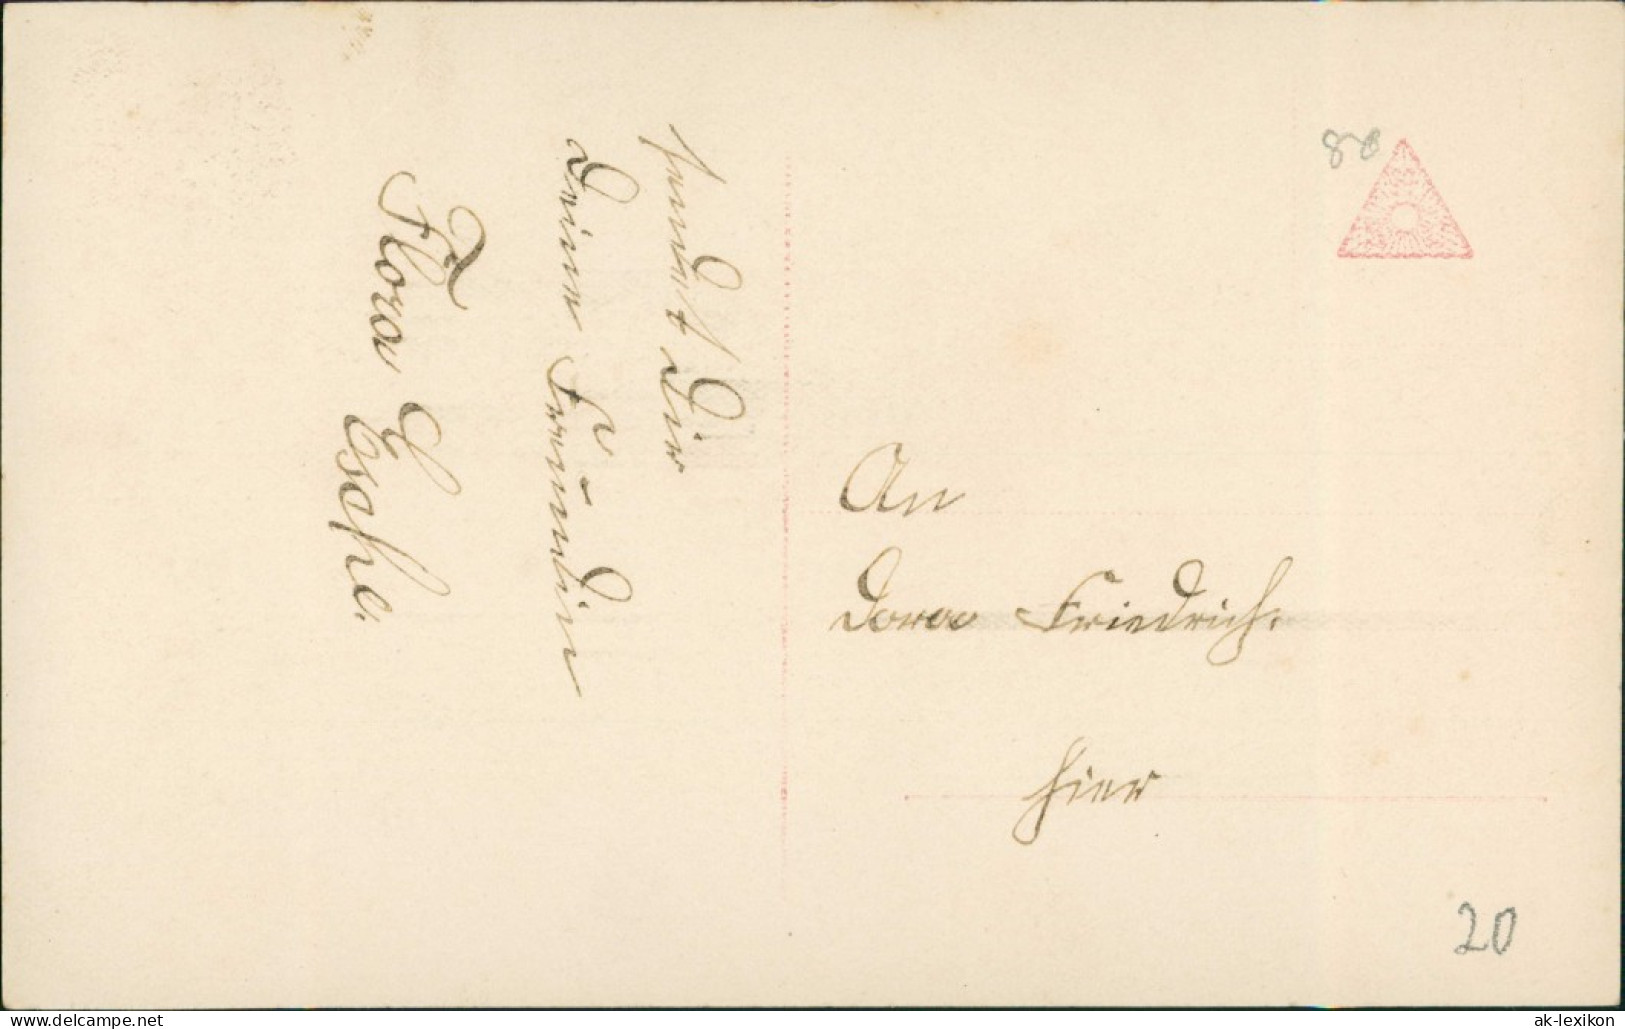 sendet Dir
Deine Freundin
Flora Esche.
An
Dora Friedrich.
hier
20
www.delcampe.net
ak-lexikon